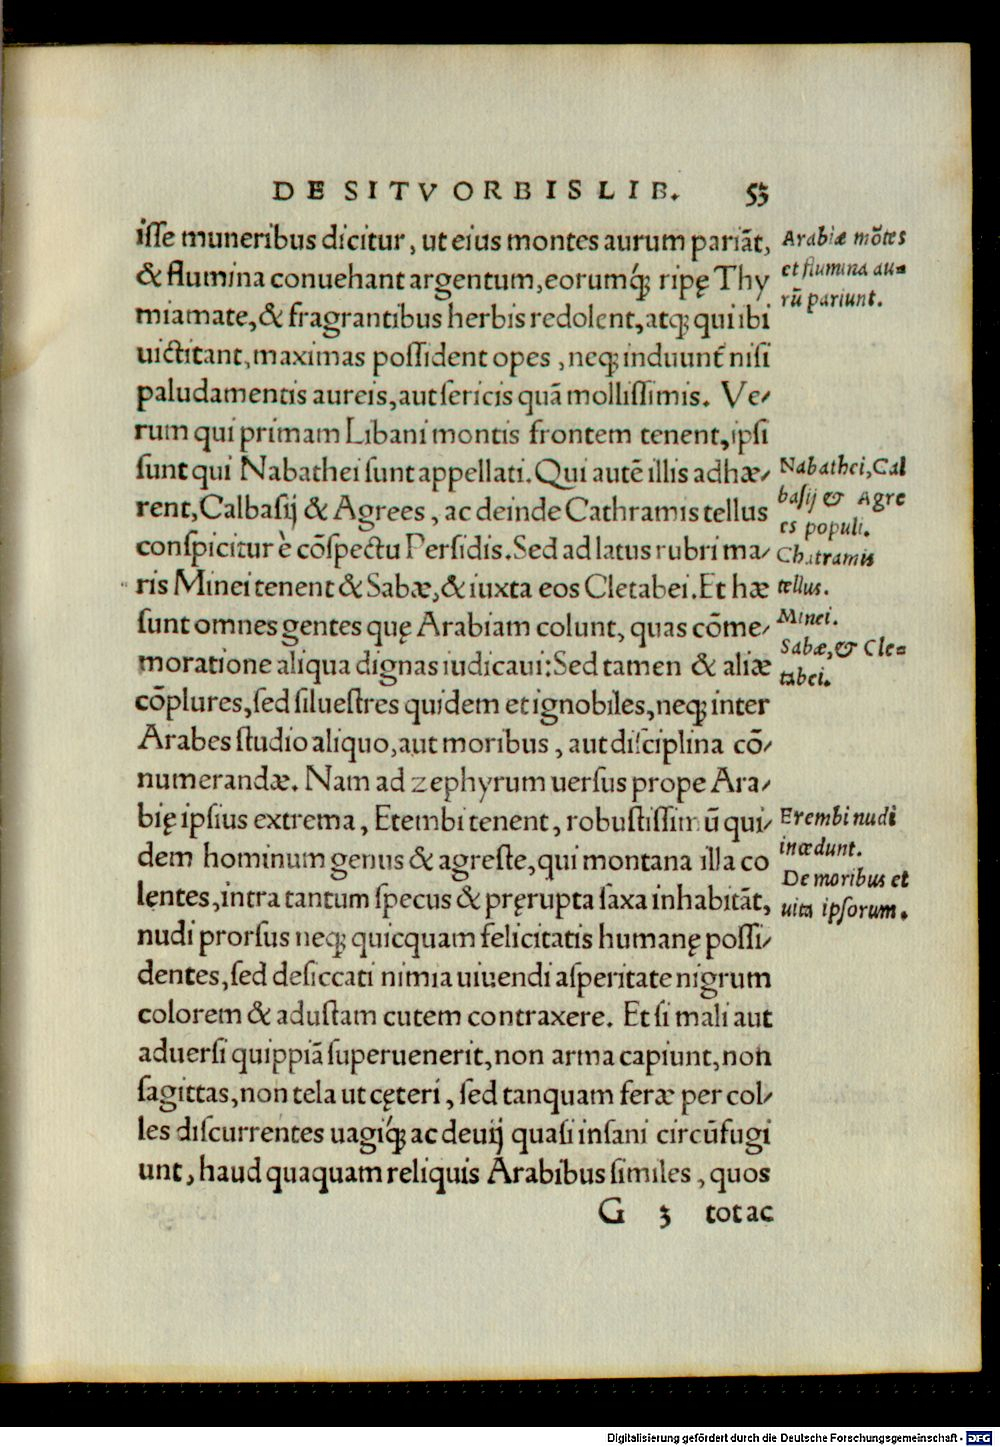 DE SITV ORBIS LIB. 53
isse muneribus dicitur, ut eius montes aurum pariāt,
& flumina conuehant argentum, eorumq́; ripę Thy
miamate, & fragrantibus herbis redolent, atq; qui ibi
uictitant, maximas possident opes, neq; induunt̄ nisi
paludamentis aureis, aut sericis quā mollissimis. Ve-
rum qui primam Libani montis frontem tenent, ipsi
sunt qui Nabathei sunt appellati. Qui autē illis adhæ-
rent, Calbasij & Agrees, ac deinde Cathramis tellus
conspicitur è cōspectu Persidis. Sed ad latus rubri ma-
ris Minei tenent & Sabæ, & iuxta eos Cletabei. Et hæ
sunt omnes gentes quę Arabiam colunt, quas cōme-
moratione aliqua dignas iudicaui: Sed tamen & aliæ
cōplures, sed siluestres quidem et ignobiles, neq; inter
Arabes studio aliquo, aut moribus, aut disciplina cō-
numerandæ. Nam ad zephyrum uersus prope Ara-
bię ipsius extrema, Etembi tenent, robustissimū qui-
dem hominum genus & agreste, qui montana illa co
lentes, intra tantum specus & pręrupta saxa inhabitāt,
nudi prorsus neq; quicquam felicitatis humanę possi-
dentes, sed desiccati nimia uiuendi asperitate nigrum
colorem & adustam cutem contraxere. Et si mali aut
aduersi quippiā superuenerit, non arma capiunt, non
sagittas, non tela ut cęteri, sed tanquam feræ per col-
les discurrentes uagiq́; ac deuij quasi insani circūfugi
unt, haud quaquam reliquis Arabibus similes, quos
G 3 tot ac
Arabiæ mōtes
et flumina au-
rū pariunt.
Nabathei, Cal
basij & Agre
es populi.
Chatramis
tellus.
Minei.
Sabæ, & Cle-
tabei.
Erembi nudi
incedunt.
De moribus et
uita ipsorum.
Digitalisierung gefördert durch die Deutsche Forschungsgemeinschaft - DFG